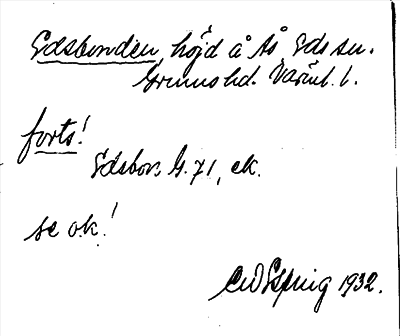 Edsbonden, höjd å Ås Eds sn.
Grums hd. Värml. l.
forts!
Edsbon. G. 71, ek.
se ok!
1932.